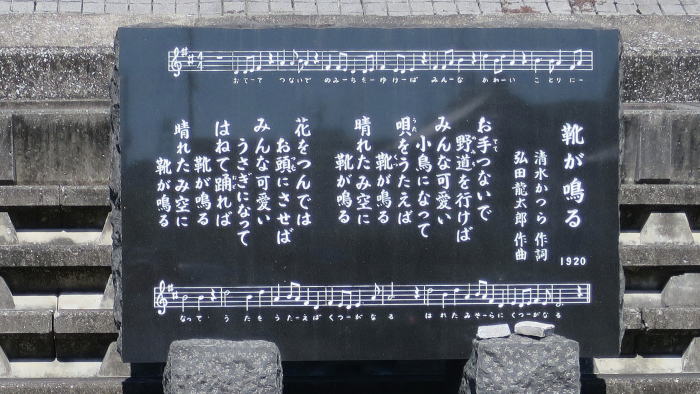 おてーて つないで のみーちをーゆけーば みんーな かわーいい ことりにー
靴が鳴る
清水かつら 作詞
弘田龍太郎 作曲
1920
お手つないで
野道を行けば
みんな可愛い
小鳥になって
唄をうたえば
靴が鳴る
晴れたみ空に
靴が鳴る
花をつんでは
お頭にさせば
みんな可愛い
うさぎになって
はねて踊れば
靴が鳴る
晴れたみ空に
靴が鳴る
なって うたをうたーえばくつーがなる はれたみそーらにくつーがなる